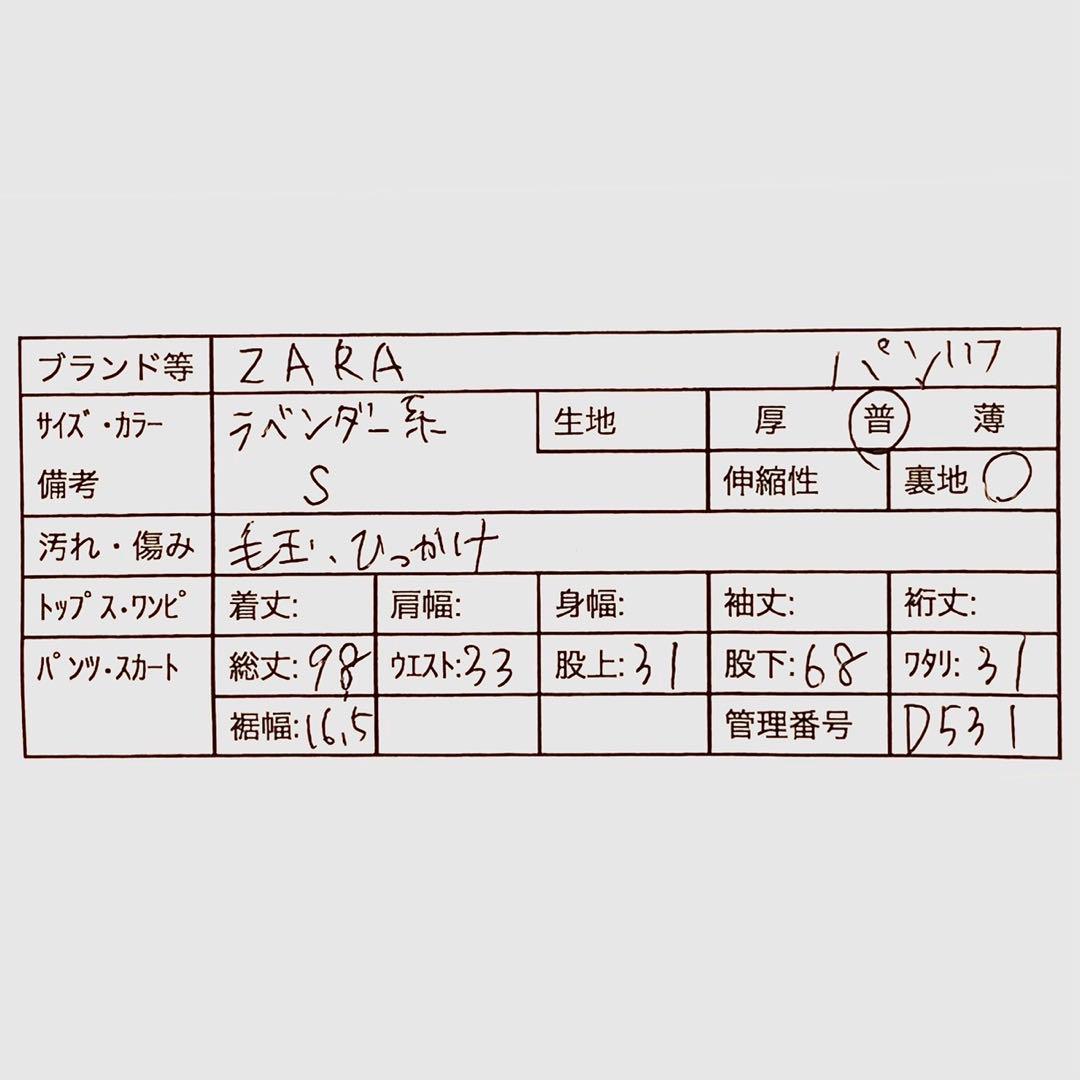 ブランド等 ZARA パンツ
サイズ・カラー ラベンダー系 生地 厚 普 薄
備考 S 伸縮性 裏地 ○
汚れ・傷み 毛玉、ひっかけ
トップス・ワンピ 着丈: 肩幅: 身幅: 袖丈: 裄丈:
パンツ・スカート 総丈:98 ウエスト:33 股上:31 股下:68 ワタリ:31
裾幅:16,5 管理番号 D531